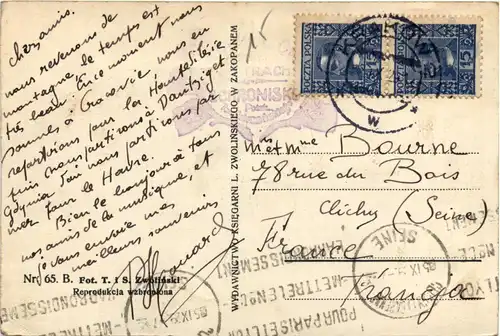 Chers amis.
nous revenons de
montagne le temps est
très beau. En ce moment nous
sommes à Cracovie nous en
repartirons pour la Haute Silésie
puis nous partirons à Dantzig et
Gdynia d'où nous partirons par
mer pour le Havre.
Bien le bonjour à tous
nos amis de la musique, et
je vous envoie mes
meilleurs souvenirs
Nr. 65. B. Fot. T. i S. Zwoliński
Reprodukcja wzbroniona
WYDAWNICTWO KSIĘGARNI L. ZWOLIŃSKIEGO W ZAKOPANEM
15
POCZTA POLSKA 15
POCZTA POLSKA 15
KRAKÓW
M et Mme Bourne
78 rue du Bois
Clichy (Seine)
France
Francja
SEINE